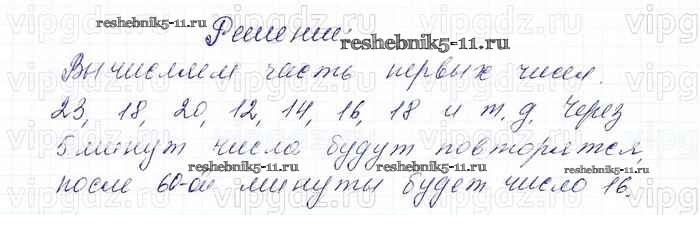 Решение
Вычислим часть первых чисел.
23, 18, 20, 12, 14, 16, 18 и т.д. Через
5 минут числа будут повторятся,
после 60-ой минуты будет число 16.
reshebnik5-11.ru
reshebnik5-11.ru
reshebnik5-11.ru
reshebnik5-11.ru
vipgdz.ru